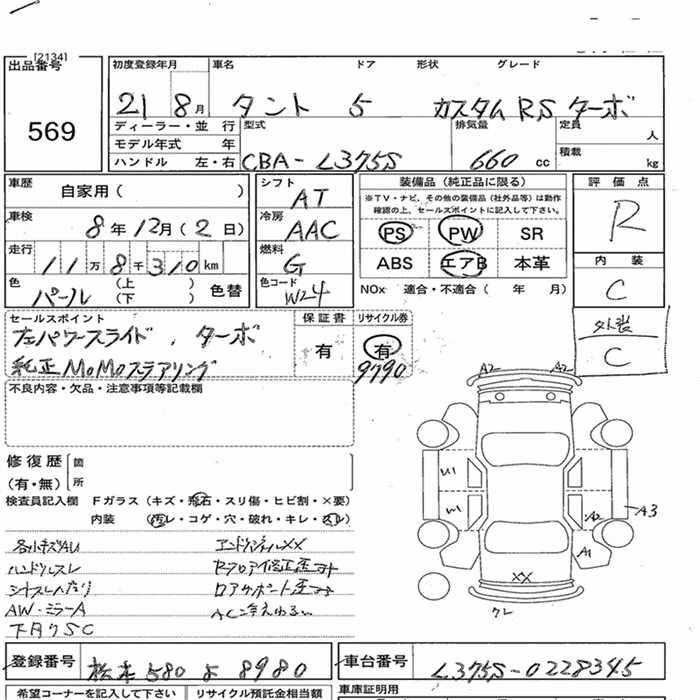 [2134]
出品番号
569
初度登録年月 車名 ドア 形状 グレード
21 8月 タント 5 カスタム RS ターボ
ディーラー・並 行 型式 排気量 定員 人
モデル年式 年 積載 kg
ハンドル 左・右 CBA-L375S 660 cc
車歴 自家用( )
車検 8年12月(2日)
走行 11万8千310km
色 パール (上 ) (下 ) 色替
シフト AT
冷房 AAC
燃料 G
色コード W24
装備品(純正品に限る)
※TV・ナビ、その他の装備品(社外品等)は動作
確認の上、セールスポイントに記入して下さい。
PS PW SR
ABS エアB 本革
NOx 適合・不適合( 年 月)
評価点
R
内装
C
外装
C
セールスポイント
左パワースライド、ターボ
純正MOMOステアリング
保証書 リサイクル券
有 有
9790
不良内容・欠品・注意事項等記載欄
修復歴 箇
(有・無) 所
検査員記入欄 Fガラス(キズ・飛石・スリ傷・ヒビ割・×要)
内装 (汚レ・コゲ・穴・破れ・キレ・スレ)
各小キズAU エンドパネルXX
ハンドルスレ Rフロア修正歪
シートスレへたり ロアサポート歪
AW・ミラーA AC冷えゆるい
下廻りSC
A2 A2
U1
A2 A3
A1
XX
ワレ
登録番号 松本 580 よ 8980
車台番号 L375S-0228345
希望コーナーを記入して下さい リサイクル預託金相当額 車庫証明用